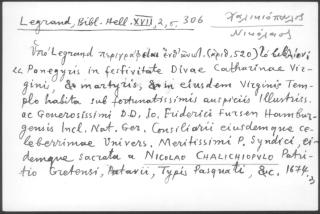 Legrand, Bibl. Hell. XVII, 2, σ. 306
Χαλικιόπουλος
Νικόλαος
Ὑπὸ Legrand περιγράφεται ἐνθ' ἀνωτ. (ἀριθ. 520) τὸ βιβλίον
«Panegyris in festivitate Divae Catharinae Vir-
ginis, & martyris, & in eiusdem Virginis Tem-
plo habita sub fortunatissimis auspiciis Illustriss.
ac Generosissimi D.D. Io. Friderici Fursen Hambur-
gensis Incl. Nat. Ger. Consiliarii eiusdemque ce-
leberrimae Univers. Meritissimi P. Syndici, ei-
demque sacrata a NICOLAO CHALICHIOPULO Patri-
tio Cretensi, Patavii, Typis Pasquati, &c. 1674.»